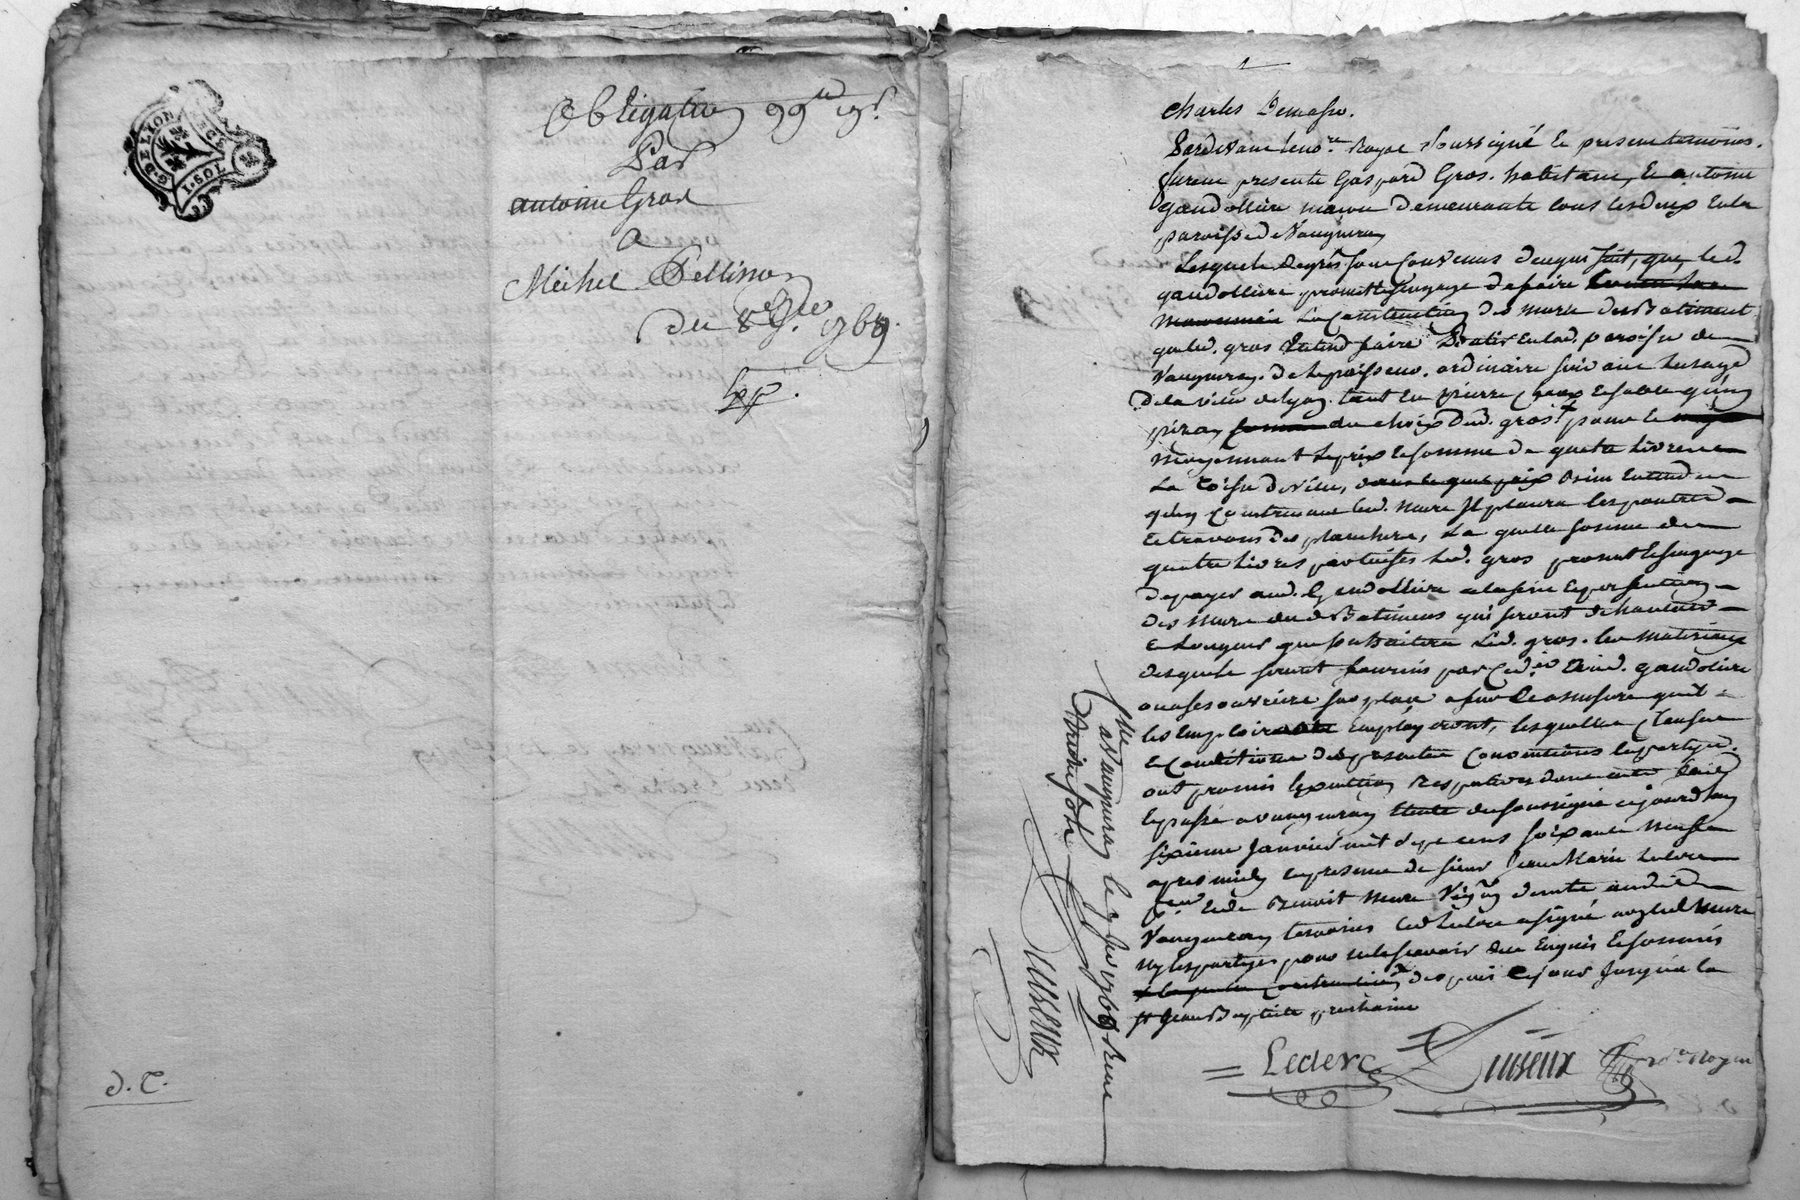 G. DE LION
1. SOL
Obligation 99ᵗᵗ 19ˢ.
Par
antoine Gros
a
Michel Pellisson
du 8e 1769.
d. C.
1
Charles Demasso.
Pardevant le no.re Royal soussigné et presens temoins.
furent presents Gaspard Gros. habitant, et antoine
gaudolliere macon demeurants tous les deux en la
paroisse de Vaugneray
Lesquels degrés sont convenus de ce qui suit, que, le d.
gaudolliere promet et s'engage de faire
la Construction des murs des Batiment
que led. gros entend faire Batir en lad. paroisse de
Vaugneray. de l'epaisseur. ordinaire suivant l'usage
de la ville de lyon. tant en pierre chaux et sable qu'en
pizay du choix dud. gros
moyennant le prix et somme de quatre livres
la toise de ville, Bien entendu
qu'en construisant led. murs il placera les poutres
et travons des planchers, la quelle somme de
quatre livres par toises led. gros promet et s'engage
de payer aud. Gaudolliere a la fin et perfection
des murs dud. Batiments qui seront de hauteur
et longueur que souhaitera led. gros. les materiaux
desquels seront fournis par led. et aud. gaudoliere
ou a ses ouvriers sur place a fur et a mesure qu'il
les employeront, lesquelles clauses
et conditions des presentes conventions les partyes.
ont promis executter respectivement
et passé a vaugneray etude du soussigné cejourdhuy
sixieme Janvier mil sept cens soixante neuf
apres midy en presence de sieur Jean Marie Leclerc
et de Benoit mure Vigneron demte aud.
Vaugneray temoins led. Leclerc a signé non led. mure
ny les partyes pour ne le scavoir de ce enquis et sommés
depuis ce jour jusqu'a la
st Jean Baptiste prochaine
Leclerc Duseux no.re Royal
a vaugneray le 7 Janv. 1769 Reçu
treize sols
Duseux